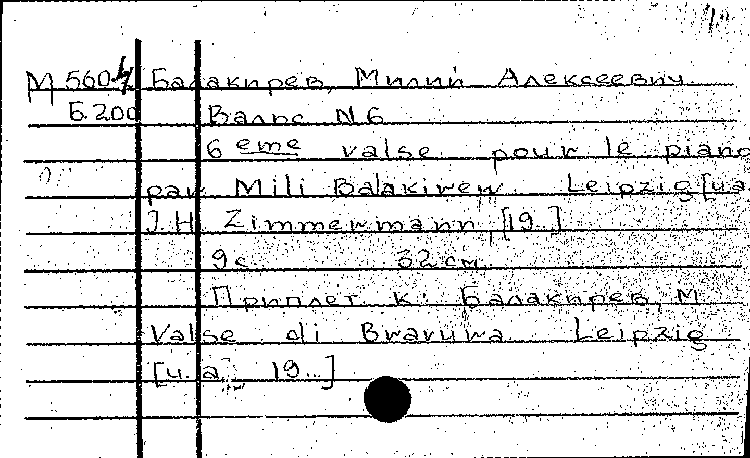 М 5604 Балакирев, Милий Алексеевич
Б.200 Вальс N6
6 eme valse pour le piano
par Mili Balakirew Leipzig [u.a.
J.H. Zimmermann, [19..]
9 с. 32 см.
Приплет. к: Балакирев, М.
Valse di Bravura Leipzig
[u.a., 19..]